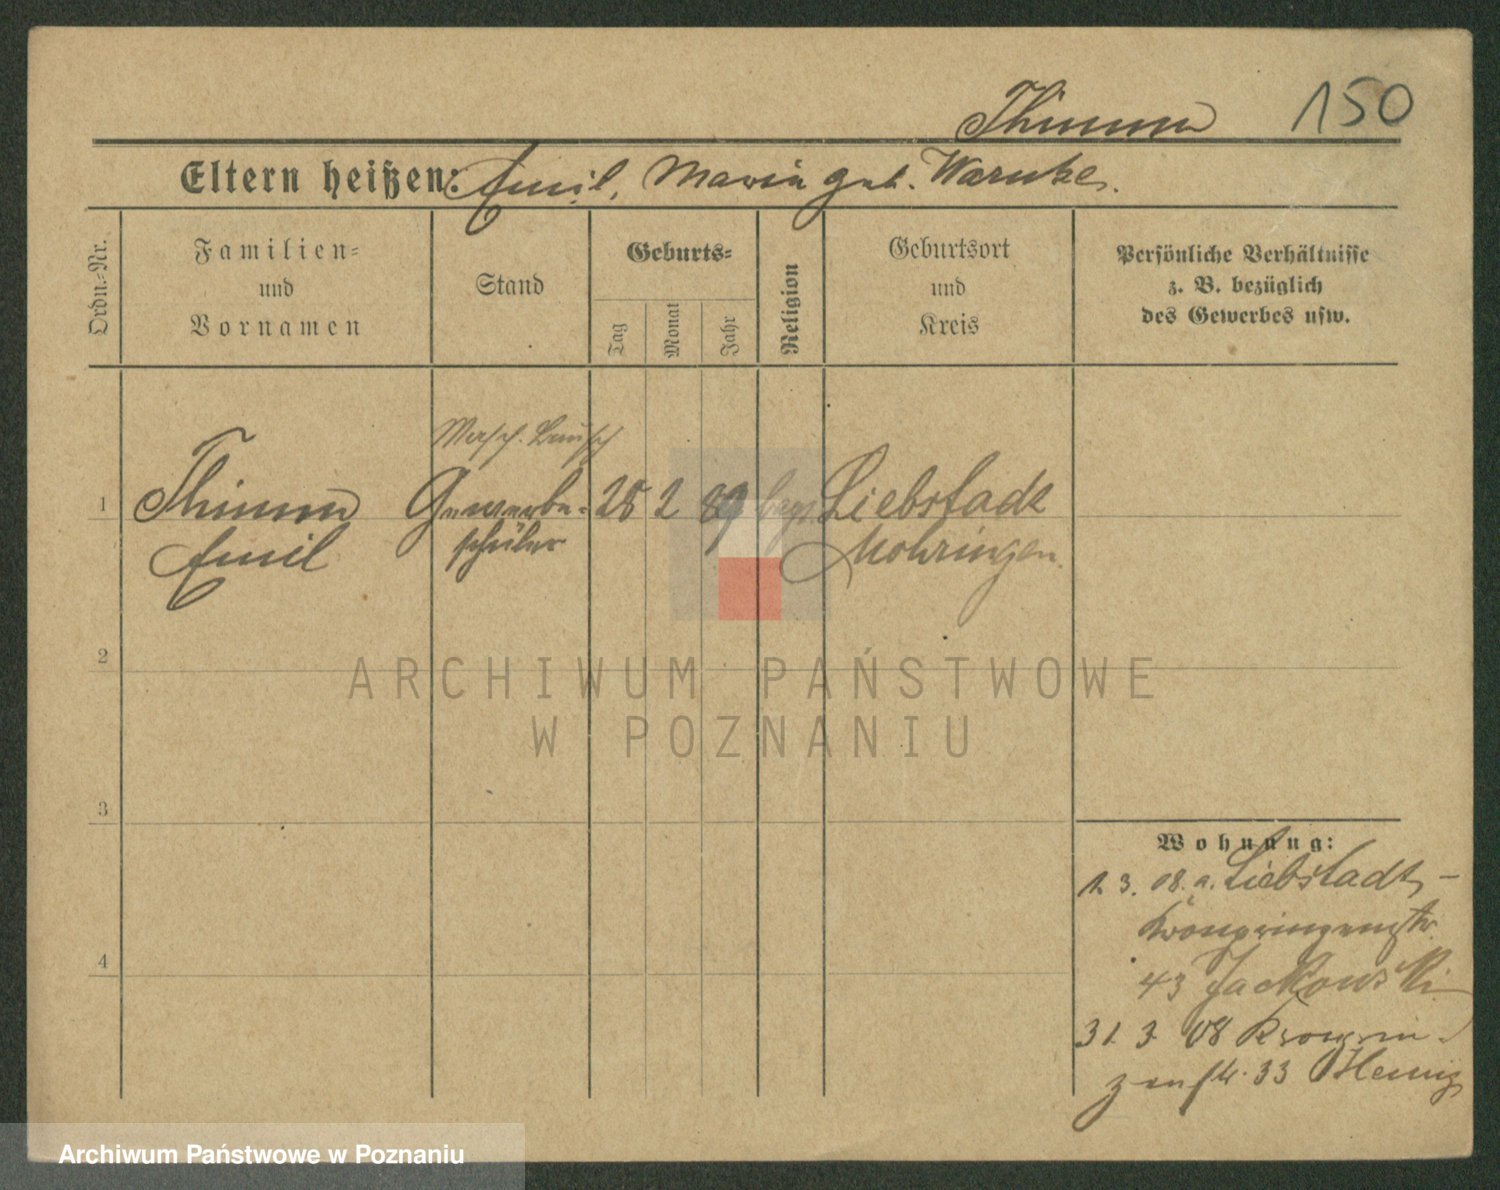 Thimm 150
Eltern heißen: Emil, Maria geb. Warnke.
Ordn.-Nr.
Familien-
und
Vornamen
Stand
Geburts-
Tag
Monat
Jahr
Religion
Geburtsort
und
Kreis
Persönliche Verhältnisse
z. B. bezüglich
des Gewerbes usw.
Masch.
1 Thimm Gewerbe- 25 2 89 Liebstadt
Emil schüler Mohringen.
2
ARCHIWUM PAŃSTWOWE
W POZNANIU
3
Wohnung:
1. 3. 08. a. Liebstadt, -
Kronprinzenstr.
4
43 Jackowski
31. 3. 08 Kronprin-
zenstr. 33 Hennig
Archiwum Państwowe w Poznaniu